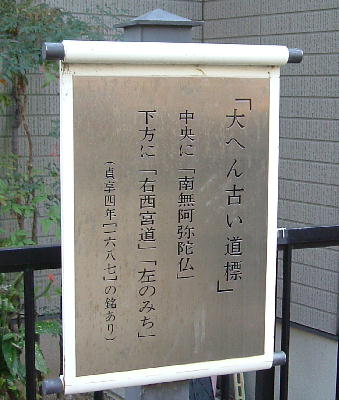 「大へん古い道標」
中央に「南無阿弥陀仏」
下方に「右西宮道」「左のみち」
(貞享四年【一六八七】の銘あり)